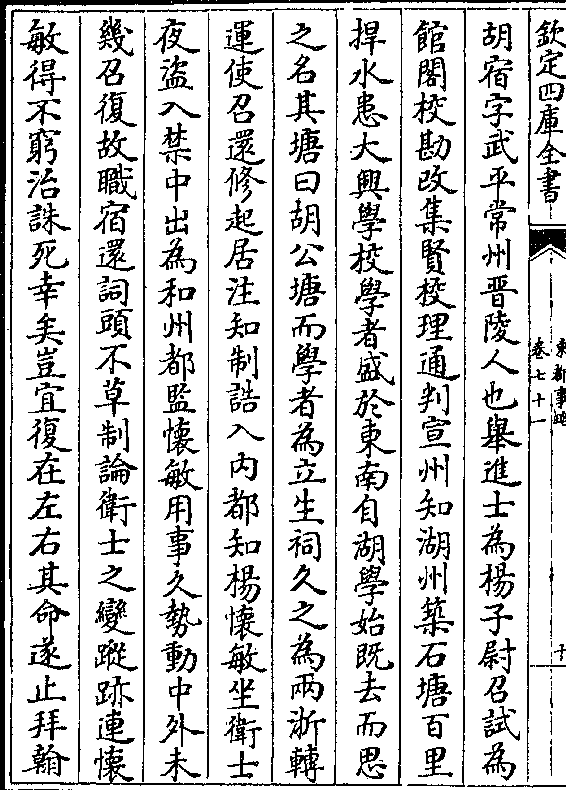 欽定四庫全書
東都事略
卷七十一
十
胡宿字武平常州晋陵人也舉進士為楊子尉召試為
館閣校勘改集賢校理通判宣州知湖州築石塘百里
捍水患大興學校學者盛於東南自湖學始既去而思
之名其塘曰胡公塘而學者為立生祠久之為兩浙轉
運使召還修起居注知制誥入内都知楊懷敏坐衛士
夜盜入禁中出為和州都監懷敏用事久勢動中外未
幾召復故職宿還詞頭不草制論衛士之變蹤跡連懷
敏得不窮治誅死幸矣豈宜復在左右其命遂止拜翰